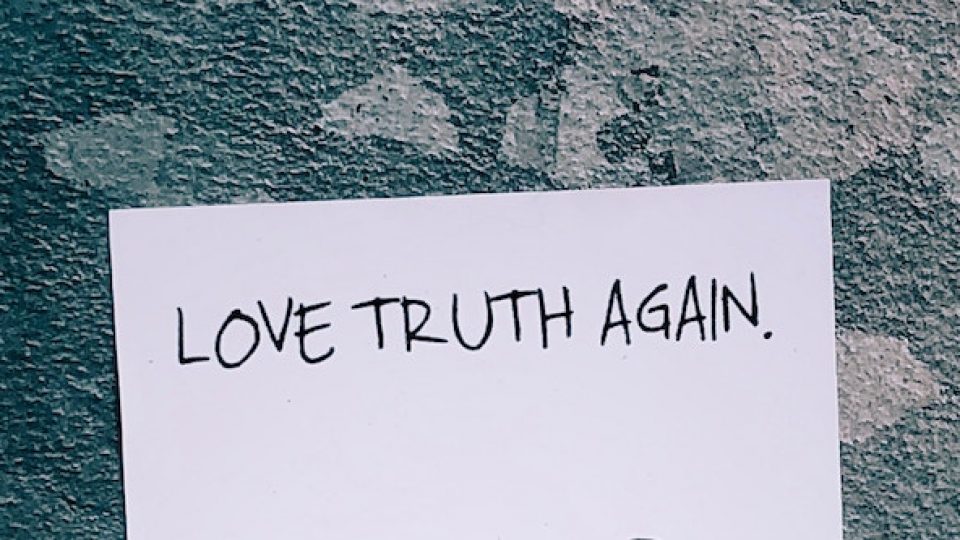 LOVE TRUTH AGAIN.